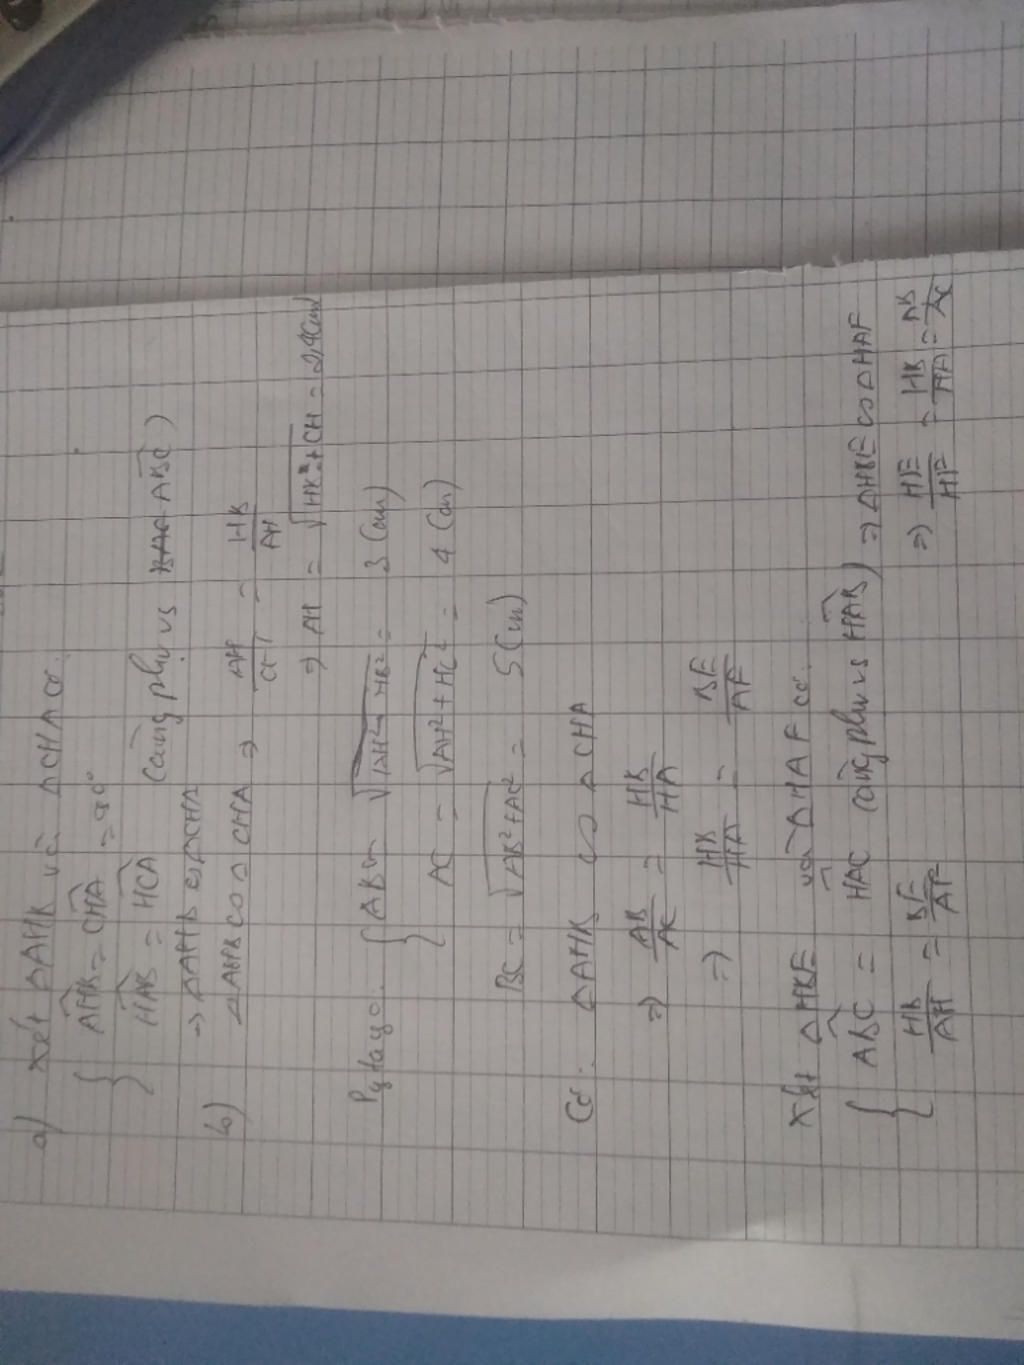 a) Xét ΔAHB và ΔCHA có:
{ AHB = CHA = 90°
HAB = HCA (cùng phụ vs ABC)
→ ΔAHB ∽ ΔCHA
b) ΔAHB ∽ ΔCHA ⇒ AH/CH = HB/AH
⇒ AH = √HB²+CH = 2,4(cm)
Pytago: { AB = √AH²+HB² = 3 (cm)
AC = √AH²+HC² = 4 (cm)
BC = √AB²+AC² = 5 (cm)
Có: ΔAHB ∽ ΔCHA
⇒ AB/AC = HB/HA
⇒ HB/HA = BE/AF
Xét ΔHBE và ΔHAF có:
{ ABC = HAC (cùng phụ vs HAB) ⇒ ΔHBE ∽ ΔHAF
HB/AH = BE/AF ⇒ HE/HF = HB/HA = AB/AC